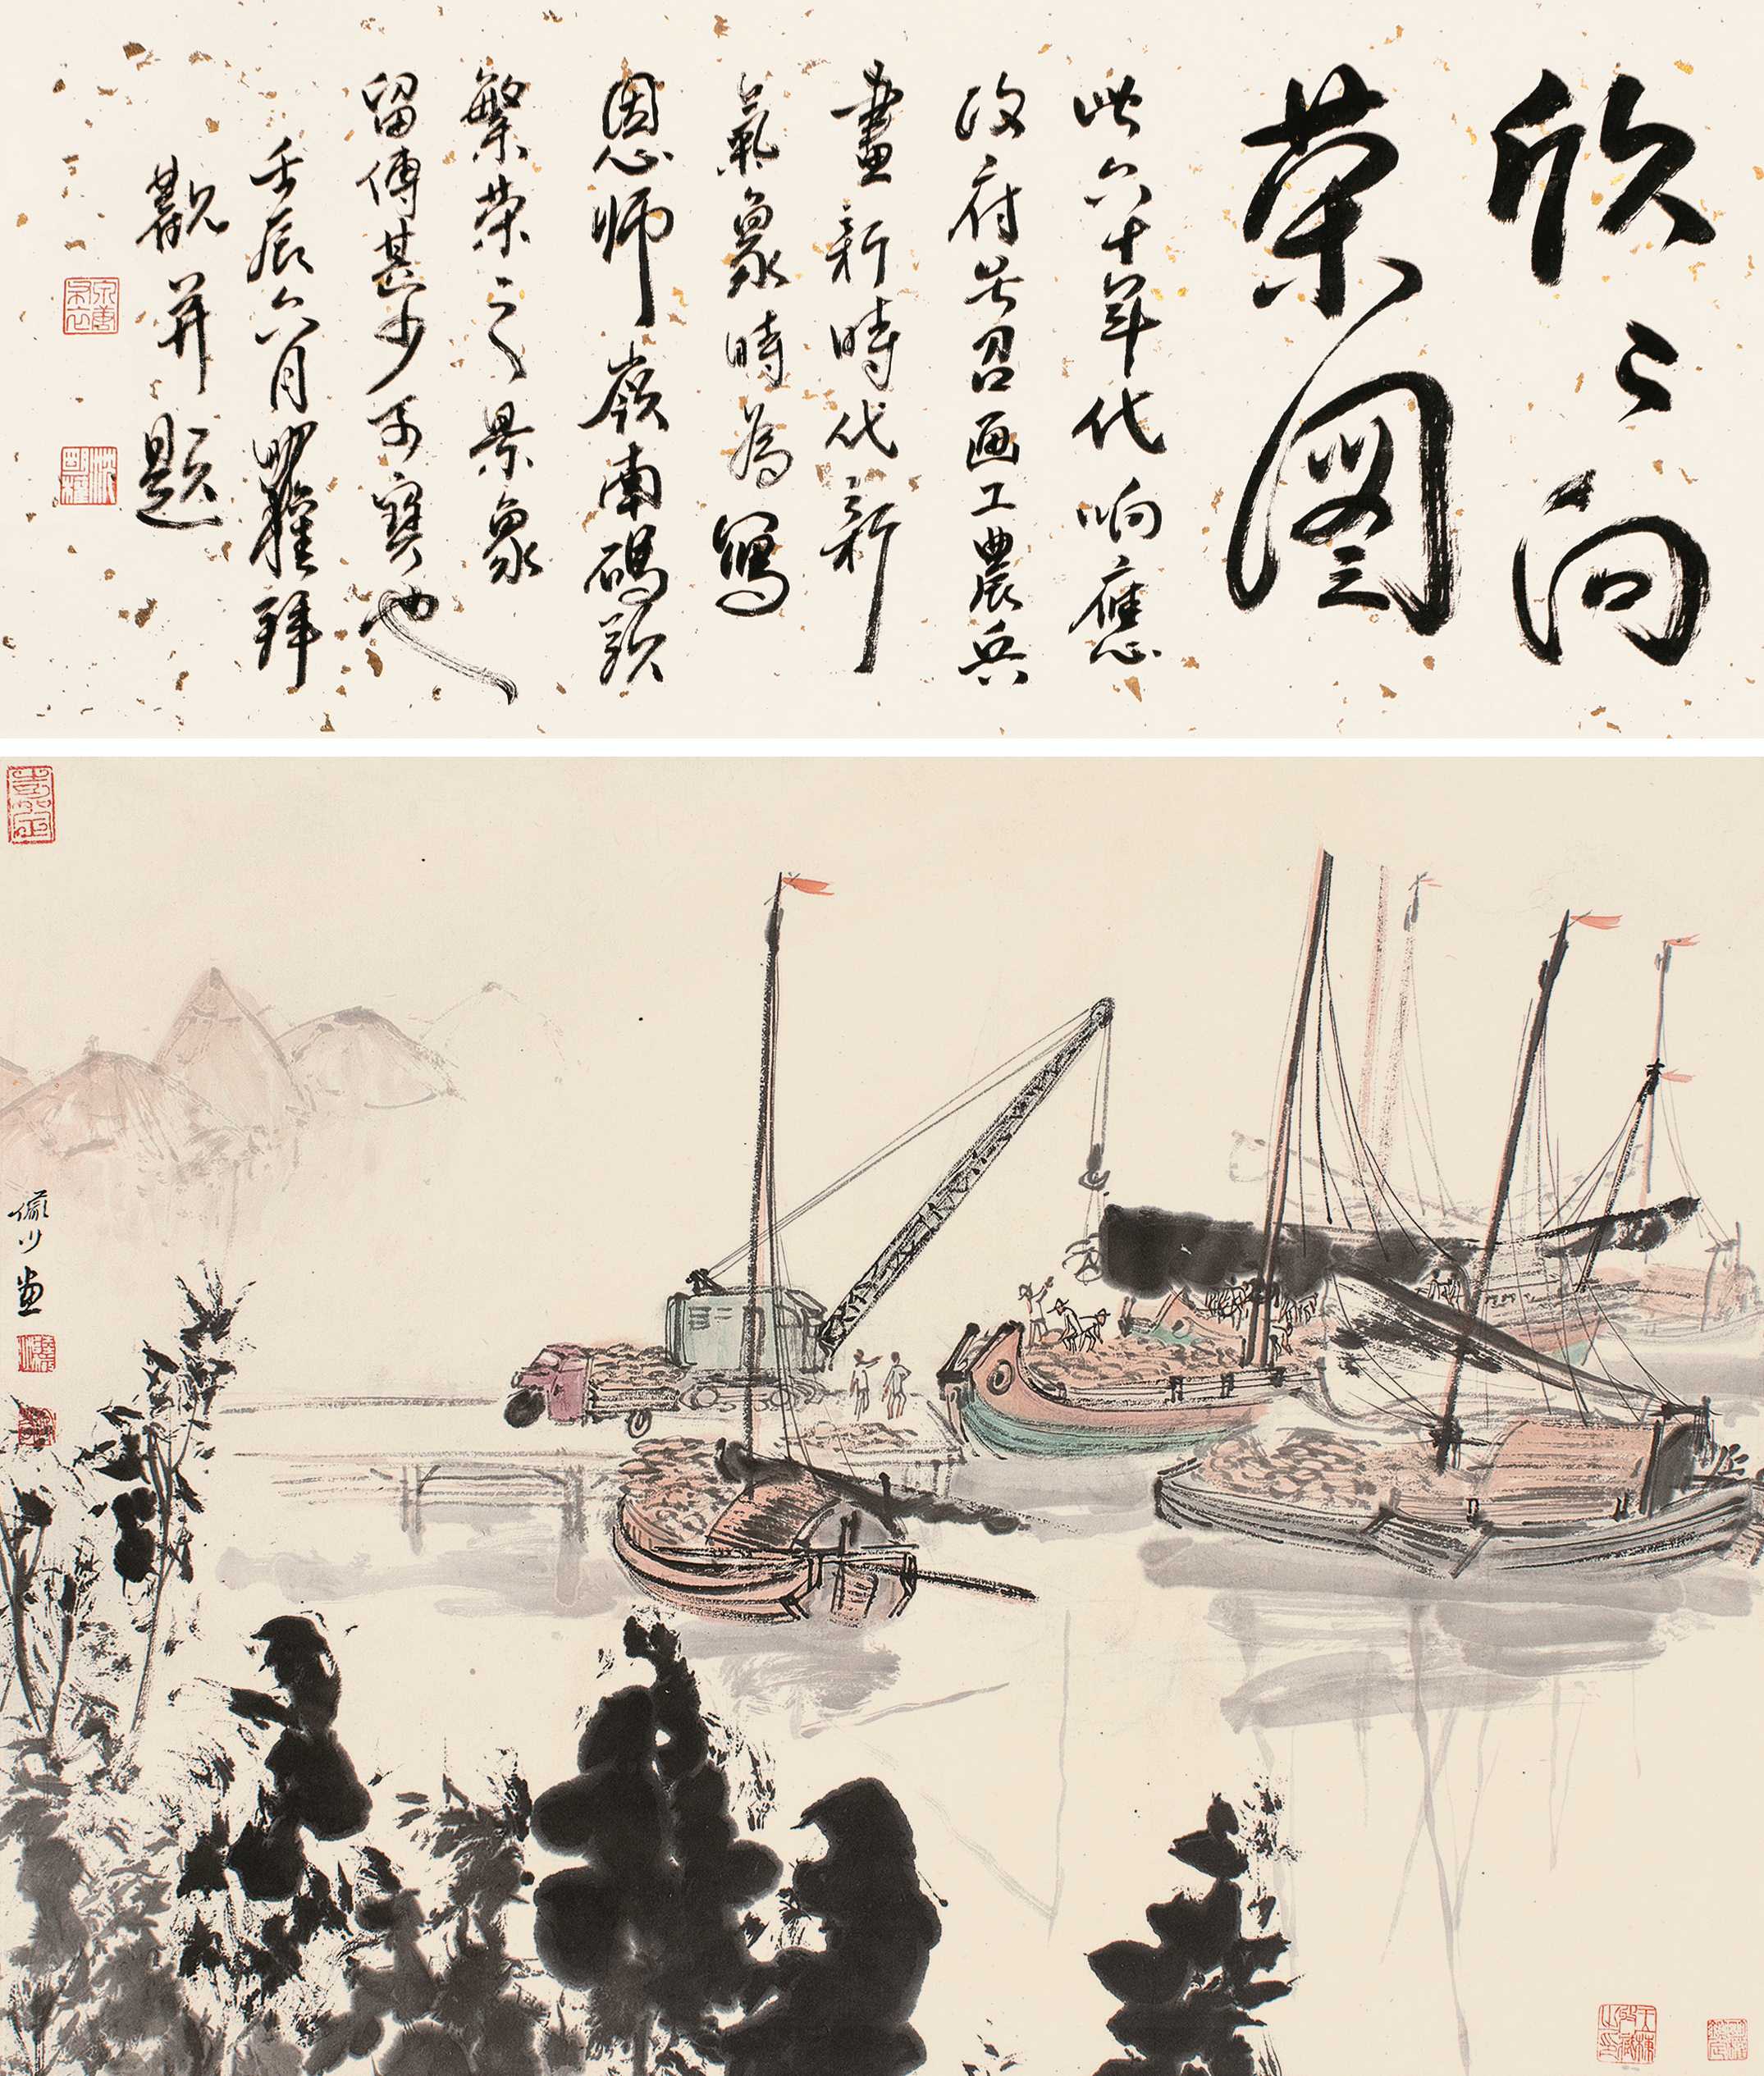 欣〻向
荣圖
此六十年代响應
政府号召画工農兵
畫新時代新
氣象時為寫
恩師嶺南碼頭
繁荣之景象
留傳甚少可寶也
壬辰六月明權拜
觀并題
儼少畫